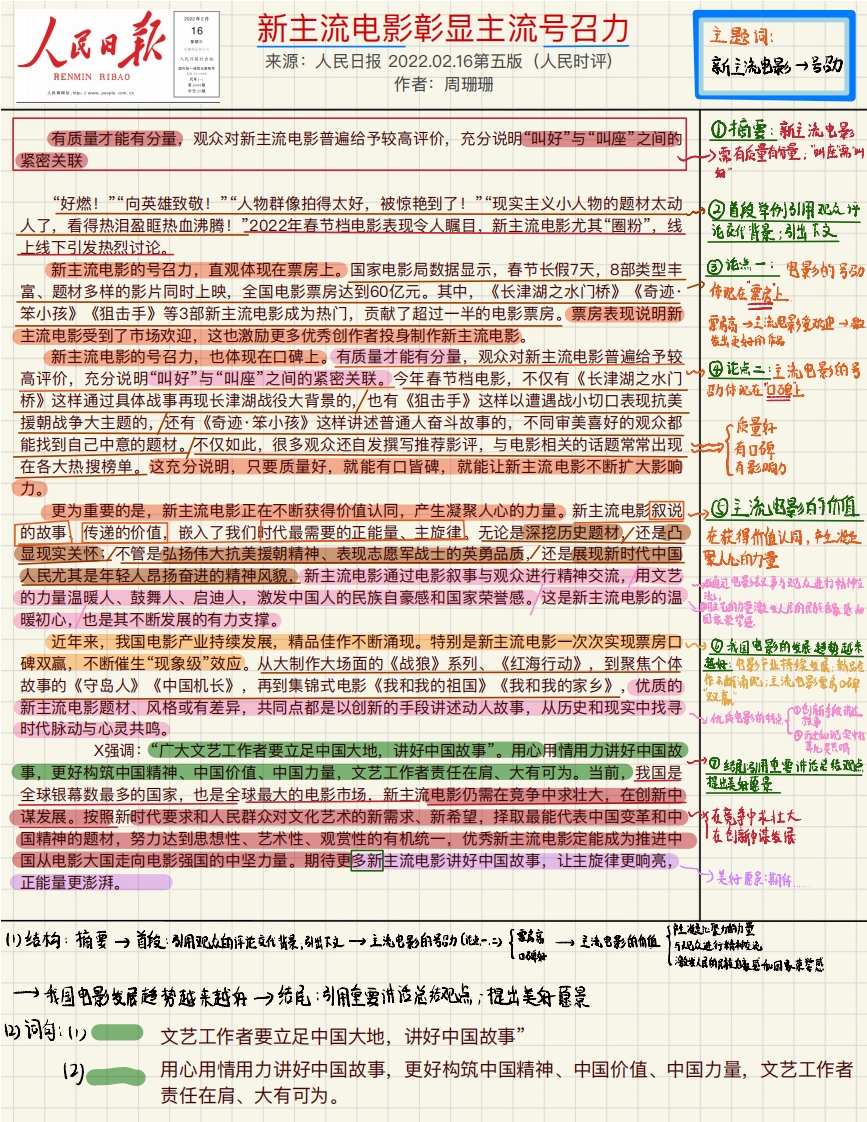 人民日报
RENMIN RIBAO
2022年2月
16
星期三
人民网网址:http://www.people.com.cn
新主流电影彰显主流号召力
来源：人民日报 2022.02.16第五版（人民时评）
作者：周珊珊
主题词：
新主流电影→号召力
有质量才能有分量，观众对新主流电影普遍给予较高评价，充分说明“叫好”与“叫座”之间的
紧密关联
“好燃！”“向英雄致敬！”“人物群像拍得太好，被惊艳到了！”“现实主义小人物的题材太动
人了，看得热泪盈眶热血沸腾！”2022年春节档电影表现令人瞩目，新主流电影尤其“圈粉”，线
上线下引发热烈讨论。
新主流电影的号召力，直观体现在票房上。国家电影局数据显示，春节长假7天，8部类型丰
富、题材多样的影片同时上映，全国电影票房达到60亿元。其中，《长津湖之水门桥》《奇迹·
笨小孩》《狙击手》等3部新主流电影成为热门，贡献了超过一半的电影票房。票房表现说明新
主流电影受到了市场欢迎，这也激励更多优秀创作者投身制作新主流电影。
新主流电影的号召力，也体现在口碑上。有质量才能有分量，观众对新主流电影普遍给予较
高评价，充分说明“叫好”与“叫座”之间的紧密关联。今年春节档电影，不仅有《长津湖之水门
桥》这样通过具体战事再现长津湖战役大背景的，也有《狙击手》这样以遭遇战小切口表现抗美
援朝战争大主题的，还有《奇迹·笨小孩》这样讲述普通人奋斗故事的，不同审美喜好的观众都
能找到自己中意的题材。不仅如此，很多观众还自发撰写推荐影评，与电影相关的话题常常出现
在各大热搜榜单。这充分说明，只要质量好，就能有口皆碑，就能让新主流电影不断扩大影响
力。
更为重要的是，新主流电影正在不断获得价值认同，产生凝聚人心的力量。新主流电影叙说
的故事、传递的价值，嵌入了我们时代最需要的正能量、主旋律。无论是深挖历史题材，还是凸
显现实关怀；不管是弘扬伟大抗美援朝精神、表现志愿军战士的英勇品质，还是展现新时代中国
人民尤其是年轻人昂扬奋进的精神风貌，新主流电影通过电影叙事与观众进行精神交流，用文艺
的力量温暖人、鼓舞人、启迪人，激发中国人的民族自豪感和国家荣誉感。这是新主流电影的温
暖初心，也是其不断发展的有力支撑。
近年来，我国电影产业持续发展，精品佳作不断涌现。特别是新主流电影一次次实现票房口
碑双赢，不断催生“现象级”效应。从大制作大场面的《战狼》系列、《红海行动》，到聚焦个体
故事的《守岛人》《中国机长》，再到集锦式电影《我和我的祖国》《我和我的家乡》，优质的
新主流电影题材、风格或有差异，共同点都是以创新的手段讲述动人故事，从历史和现实中找寻
时代脉动与心灵共鸣。
X强调：“广大文艺工作者要立足中国大地，讲好中国故事”。用心用情用力讲好中国故
事，更好构筑中国精神、中国价值、中国力量，文艺工作者责任在肩、大有可为。当前，我国是
全球银幕数最多的国家，也是全球最大的电影市场，新主流电影仍需在竞争中求壮大，在创新中
谋发展。按照新时代要求和人民群众对文化艺术的新需求、新希望，择取最能代表中国变革和中
国精神的题材，努力达到思想性、艺术性、观赏性的有机统一，优秀新主流电影定能成为推进中
国从电影大国走向电影强国的中坚力量。期待更多新主流电影讲好中国故事，让主旋律更响亮，
正能量更澎湃。
①摘要：新主流电影
需有质量有分量；“叫座”需“叫
好”
②首段举例引用观众评
论交代背景；引出下文
③论点一：电影的号召力
体现在“票房”上
票房高→主流电影受欢迎→激
发出更好的作品
④论点二：主流电影的号
召力体现在“口碑”上
质量好
有口碑
有影响力
⑤主流电影的价值
在获得价值认同，产生凝
聚人心的力量
⑥我国电影的发展趋势越来
越好：电影产业持续发展，精品佳
作不断涌现；主流电影票房口碑
“双赢”
优质电影的特点
①创新手段讲述
故事
⑦结尾引用重要讲话总结观点
提出美好愿景
在竞争中求壮大
在创新中谋发展
美好愿景：期待……
(1)结构：摘要→首段：引用观众的评论交代背景，引出下文→主流电影的号召力(论点一、二)
票房高
口碑好
→主流电影的价值
产生凝聚人心的力量
与观众进行精神交流
激发人民的民族自豪感和国家荣誉感
→我国电影发展趋势越来越好→结尾：引用重要讲话总结观点；提出美好愿景
(2)词句：(1) 文艺工作者要立足中国大地，讲好中国故事”
(2) 用心用情用力讲好中国故事，更好构筑中国精神、中国价值、中国力量，文艺工作者
责任在肩、大有可为。